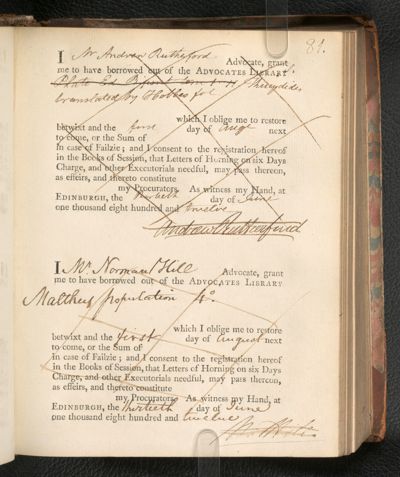 81.
I Mr Andrew Rutherford Advocate, grant
me to have borrowed out of the ADVOCATES LIBRARY
Plato Ed. Bipont Thucydides
translated by Hobbes fol
which I oblige me to restore
betwixt and the first day of Augt next
to come, or the Sum of
in case of Failzie ; and I consent to the registration hereof
in the Books of Session, that Letters of Horning on six Days
Charge, and other Executorials needful, may pass thereon,
as effeirs, and thereto constitute
my Procurators. As witness my Hand, at
EDINBURGH, the thirtieth day of June
one thousand eight hundred and twelve
Andrew Rutherfurd
I Mr. Norman Hill Advocate, grant
me to have borrowed out of the ADVOCATES LIBRARY
Malthus population 4o
which I oblige me to restore
betwixt and the first day of August next
to come, or the Sum of
in case of Failzie ; and I consent to the registration hereof
in the Books of Session, that Letters of Horning on six Days
Charge, and other Executorials needful, may pass thereon,
as effeirs, and thereto constitute
my Procurators. As witness my Hand, at
EDINBURGH, the thirtieth day of June
one thousand eight hundred and twelve